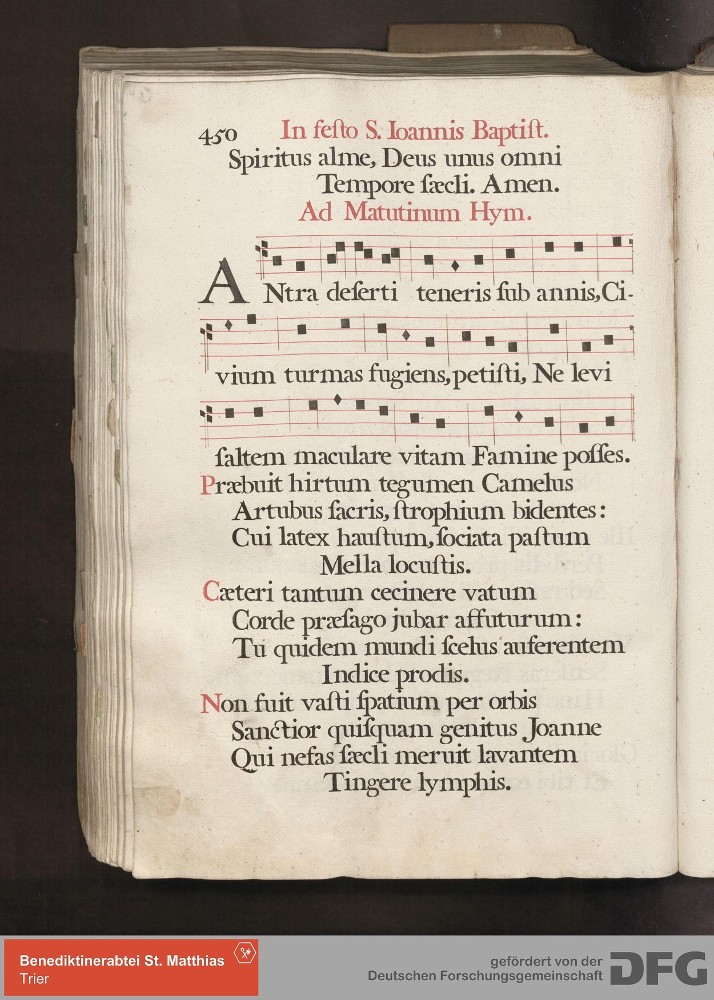 450 In feſto S. Ioannis Baptiſt.
Spiritus alme, Deus unus omni
Tempore ſæcli. Amen.
Ad Matutinum Hym.
ANtra deſerti teneris ſub annis, Ci-
vium turmas fugiens, petiſti, Ne levi
ſaltem maculare vitam Famine poſſes.
Præbuit hirtum tegumen Camelus
Artubus ſacris, ſtrophium bidentes:
Cui latex hauſtum, ſociata paſtum
Mella locuſtis.
Cæteri tantum cecinere vatum
Corde præſago jubar affuturum:
Tu quidem mundi ſcelus auferentem
Indice prodis.
Non fuit vaſti ſpatium per orbis
Sanctior quiſquam genitus Joanne
Qui nefas ſæcli meruit lavantem
Tingere lymphis.
Benediktinerabtei St. Matthias
Trier
gefördert von der
Deutschen Forschungsgemeinschaft
DFG